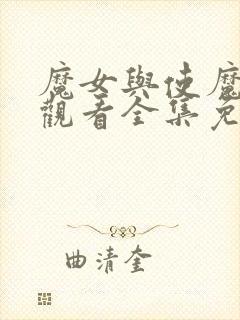 魔女與使魔
觀看全集免
曲清奎